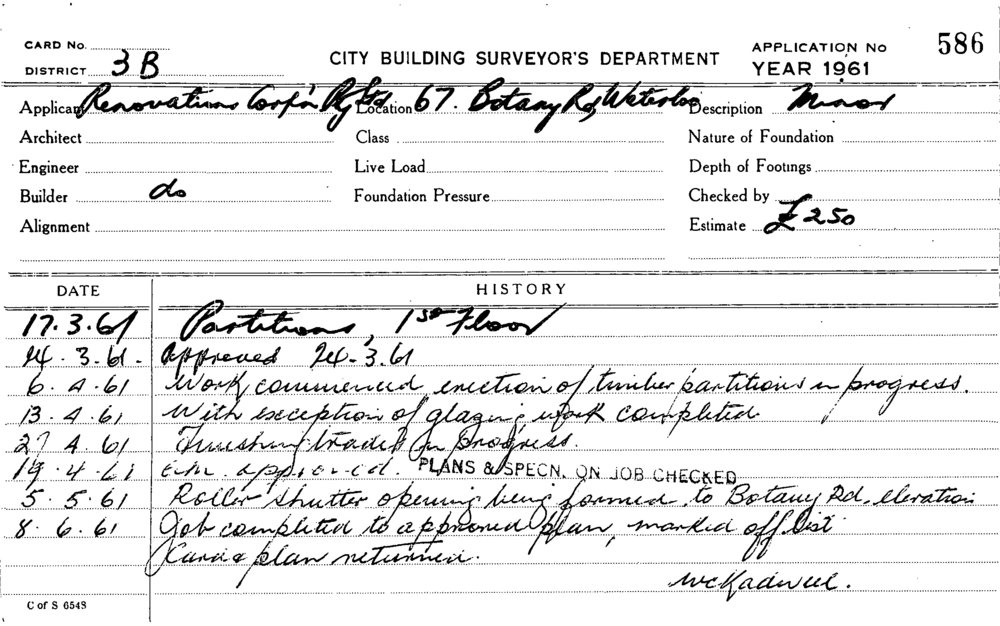 CARD No.
CITY BUILDING SURVEYOR'S DEPARTMENT
APPLICATION No 586
DISTRICT 3B
YEAR 1961
Applicant Renovations Corp'n Pty Ltd Location 67. Botany Rd, Waterloo Description Minor
Architect Class Nature of Foundation
Engineer Live Load Depth of Footings
Builder do Foundation Pressure Checked by
Alignment Estimate £250
DATE HISTORY
17.3.61 Partitions, 1st Floor
24.3.61. Approved 24.3.61
6.4.61 Work commenced, erection of timber partitions in progress.
13.4.61 With exception of glazing, work completed
27 4.61 Finishing trades in progress.
19.4.61 approved. PLANS & SPECN. ON JOB CHECKED
5.5.61 Roller shutter opening being formed to Botany Rd. elevation
8.6.61 Job completed to approved plan, marked off list
Card & plan returned.
C of S 6543